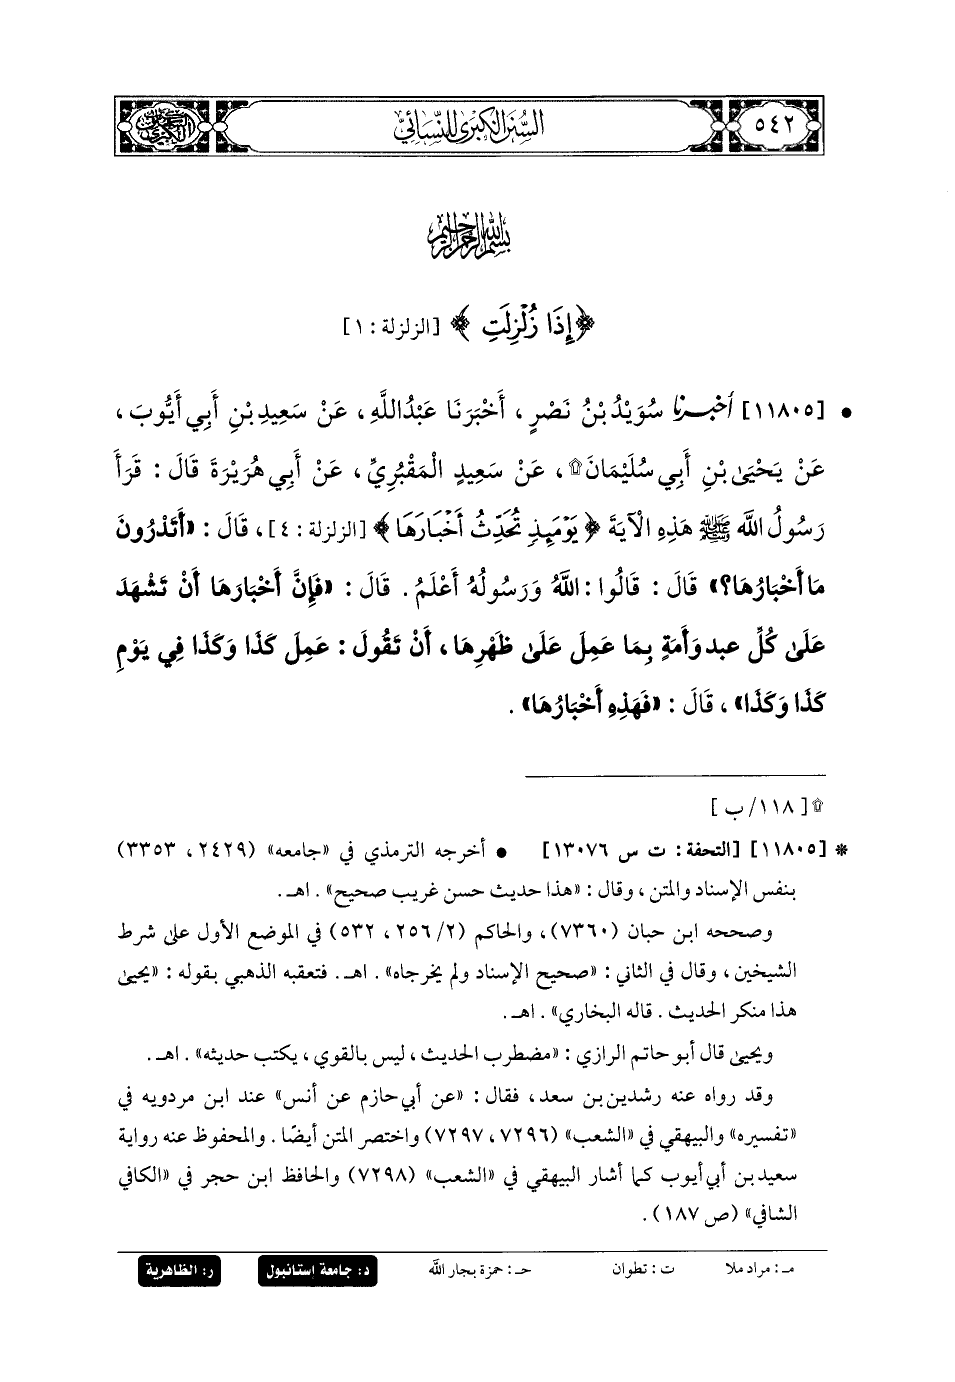 ٥٤٢
السنن الكبرى للنسائي
السنن الكبرى
بسم الله الرحمن الرحيم
﴿إِذَا زُلْزِلَتِ﴾ [الزلزلة: ١]
• [١١٨٠٥] أخبرنا سُوَيْدُ بْنُ نَصْرٍ، أَخْبَرَنَا عَبْدُاللَّهِ، عَنْ سَعِيدِ بْنِ أَبِي أَيُّوبَ،
عَنْ يَحْيَىٰ بْنِ أَبِي سُلَيْمَانَ۩، عَنْ سَعِيدٍ الْمَقْبُرِيِّ، عَنْ أَبِي هُرَيْرَةَ قَالَ: قَرَأَ
رَسُولُ اللَّه ﷺ هَذِهِ الْآيَةَ ﴿يَوْمَئِذٍ تُحَدِّثُ أَخْبَارَهَا﴾ [الزلزلة: ٤]، قَالَ: «أَتَدْرُونَ
مَا أَخْبَارُهَا؟» قَالَ: قَالُوا: اللَّهُ وَرَسُولُهُ أَعْلَمُ. قَالَ: «فَإِنَّ أَخْبَارَهَا أَنْ تَشْهَدَ
عَلَىٰ كُلِّ عبد وَأَمَةٍ بِمَا عَمِلَ عَلَىٰ ظَهْرِهَا، أَنْ تَقُولَ: عَمِلَ كَذَا وَكَذَا فِي يَوْمِ
كَذَا وَكَذَا»، قَالَ: «فَهَذِهِ أَخْبَارُهَا».
۩ [١١٨/ب]
* [١١٨٠٥] [التحفة: ت س ١٣٠٧٦] • أخرجه الترمذي في «جامعه» (٢٤٢٩، ٣٣٥٣)
بنفس الإسناد والمتن، وقال: «هذا حديث حسن غريب صحيح». اهـ.
وصححه ابن حبان (٧٣٦٠)، والحاكم (٢/ ٢٥٦، ٥٣٢) في الموضع الأول على شرط
الشيخين، وقال في الثاني: «صحيح الإسناد ولم يخرجاه». اهـ. فتعقبه الذهبي بقوله: «يحيى
هذا منكر الحديث. قاله البخاري». اهـ.
ويحيى قال أبو حاتم الرازي: «مضطرب الحديث، ليس بالقوي، يكتب حديثه». اهـ.
وقد رواه عنه رشدين بن سعد، فقال: «عن أبي حازم عن أنس» عند ابن مردويه في
«تفسيره» والبيهقي في «الشعب» (٧٢٩٦، ٧٢٩٧) واختصر المتن أيضًا. والمحفوظ عنه رواية
سعيد بن أبي أيوب كما أشار البيهقي في «الشعب» (٧٢٩٨) والحافظ ابن حجر في «الكافي
الشافي» (ص ١٨٧).
مـ: مراد ملا ت: تطوان حـ: حمزة بجار الله د: جامعة إستانبول ر: الظاهرية